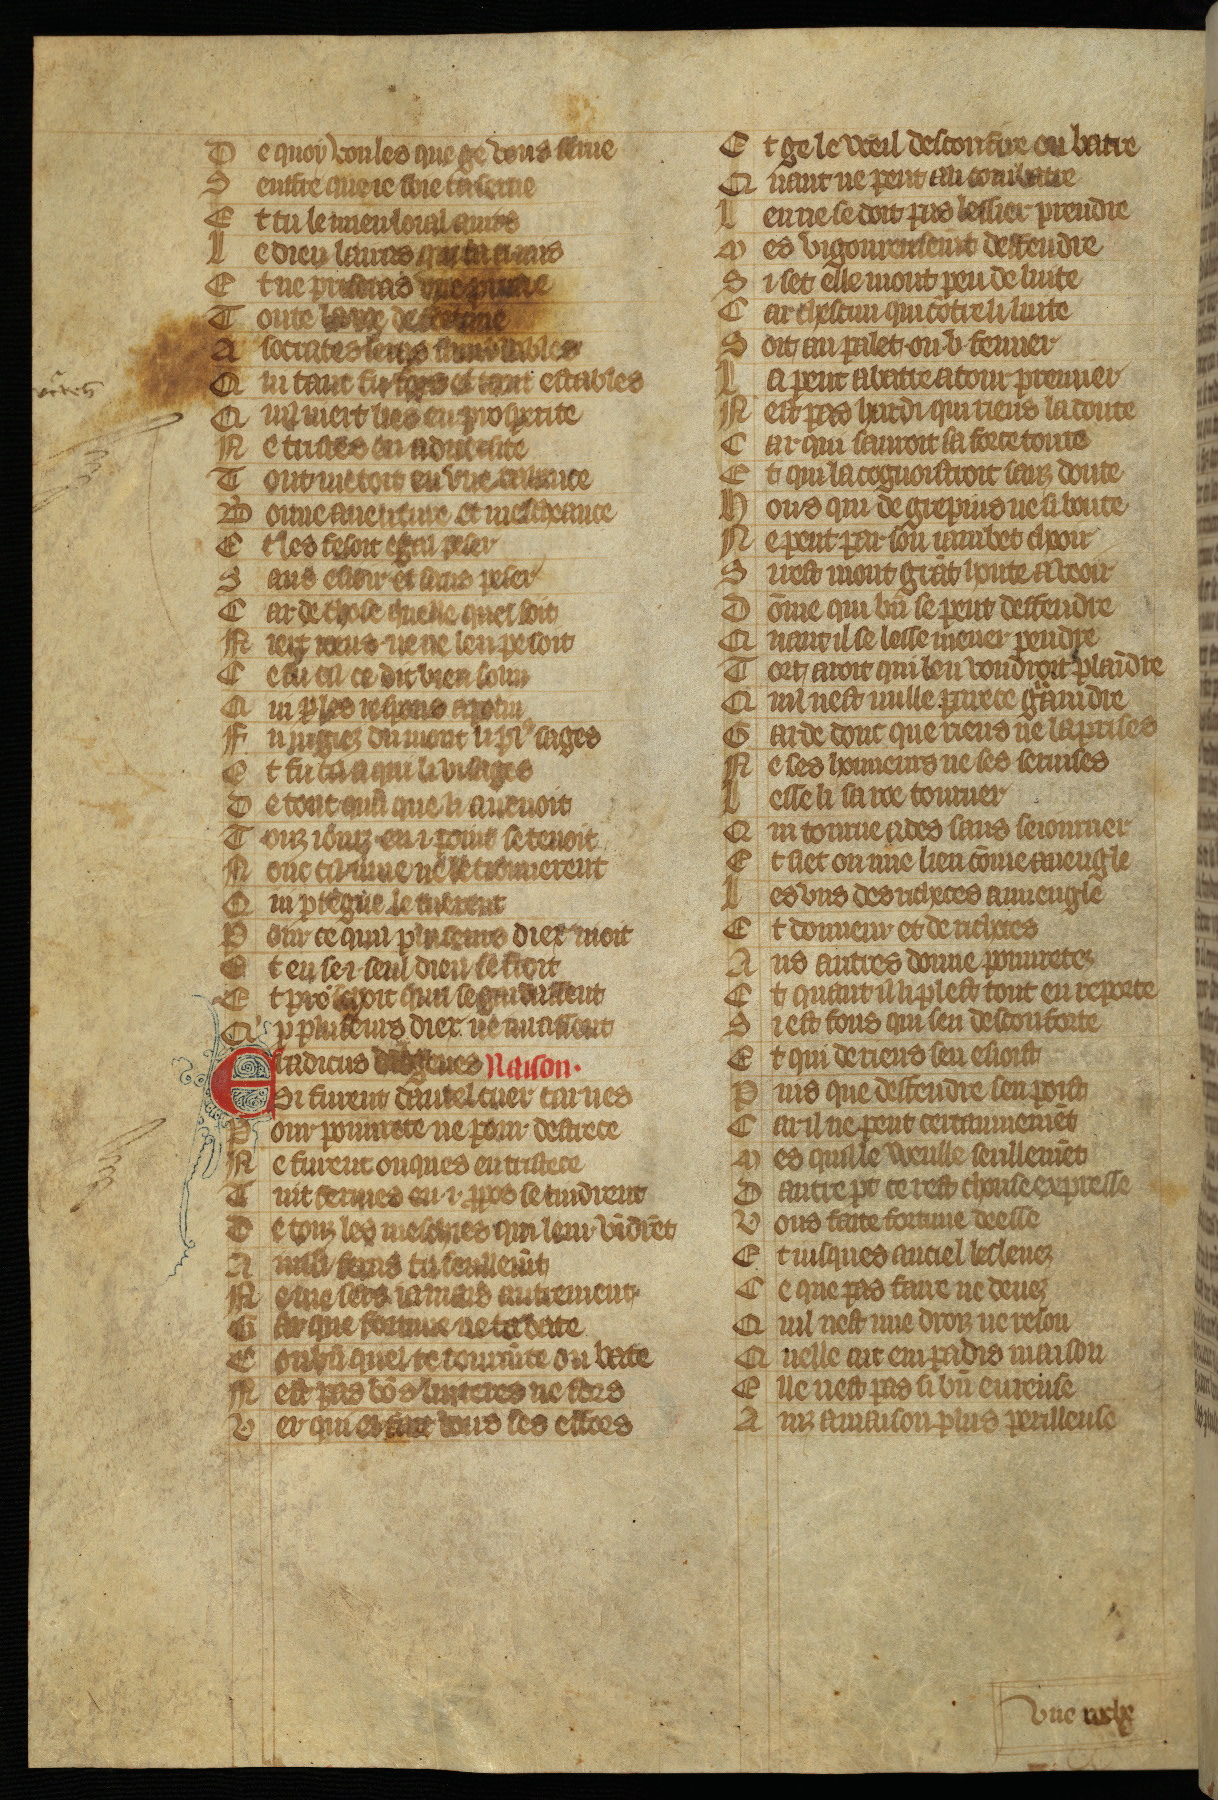 De quoy voules que ge vous serue
Seuffre que ie soie ta serue
Et tu le mieu loial amis
Le dieu lairas qui ta ci mis
Et ne priseras vne prune
Toute la roe de fortune
A socrates seras semblables
Qui tant fu fors et tant estables
Quil niert lies en prosperite
Ne tristes en aduersite
Tout metoit en vne balance
Bonne auenture et mescheance
Et les fesoit egau peser
Sans esioir et sans peser
Car de chose quelle quel soit
Niert ioeus ne ne len pesoit
Ce fu cil ce dit bien solin
Qui p les respons apolin
Fu iugiez du mont li pl9 sages
Ce fu cil a qui li visages
De tout quā que li auenoit
Touz iourz en .i. point se tenoit
Nonc cil mue ne le trouuerent
Qui p tegūe le tuerent
Pour ce quil pluseurs diex nioit
Et en se .i. seul dieu se fioit
Et preschoit quil se gardassent
Q' p pluseurs diex ne iurassent
Eradicus diogenes Raison.
Si furent dautel cuer car nes
Pour pourrete ne pour destrece
Ne furent onques en tristece
Tuit fermes en .i. ppos se tindrent
De touz les meschies qui leur vīdrēt
Ainssi feras tu seullemēt
Ne me sers iamais autrement
Gar que fortune ne tabate
Cōbiē quel te tourmēte ou bate
Nest pas bōs luiteres ne fors
Ver qui est fait touz ses effors
Et ge le veil desconfire ou batre
Quant ne peut a li combatre
Len ne se doit pas lessier prendre
Mes vigoureusemt deffendre
Si set elle mont peu de luite
Car chescun qui cōtre li luite
Soit en palet ou .b. fermer
La peut abatre a tour premier
Nest pas hardi qui riens la doute
Car qui sauroit sa force toute
Et qui la cognoistroit sanz doute
Hous qui de gre pius ne si boute
Ne peut par son iambet choir
Si rest mont grāt honte a veoir
Dōme qui biē se peut deffendre
Quant il se lesse mener pendre
Tort auroit qui len voudroit plaīdre
Quil nest nulle parece graīndre
Garde donc que riens ne la prises
Ne ses honneurs ne ses seruises
Lesse li sa roe tourner
Qui tourne ades sans seiourner
Et siet ou mie lieu cōme aueugle
Les vns des richeces auueugle
Et donneur et de richeces
Aus autres donne pouuretez
Et quant il li plest tout en reporte
Si est fous qui sen desconforte
Et qui de riens sen esioist
Puis que deffendre sen poist
Car il ne peut certainnemēt
Mes quil le veuille seullemēt
Dautre pt ce rest chouse expresse
Vous faite fortune deesse
Et iusques au ciel lesleuez
Ce que pas faire ne deuez
Quil nest mie droiz ne reson
Quelle ait em padis maison
Elle nest pas si biē eureuse
Ainz a maison plus perilleuse
Vne roche